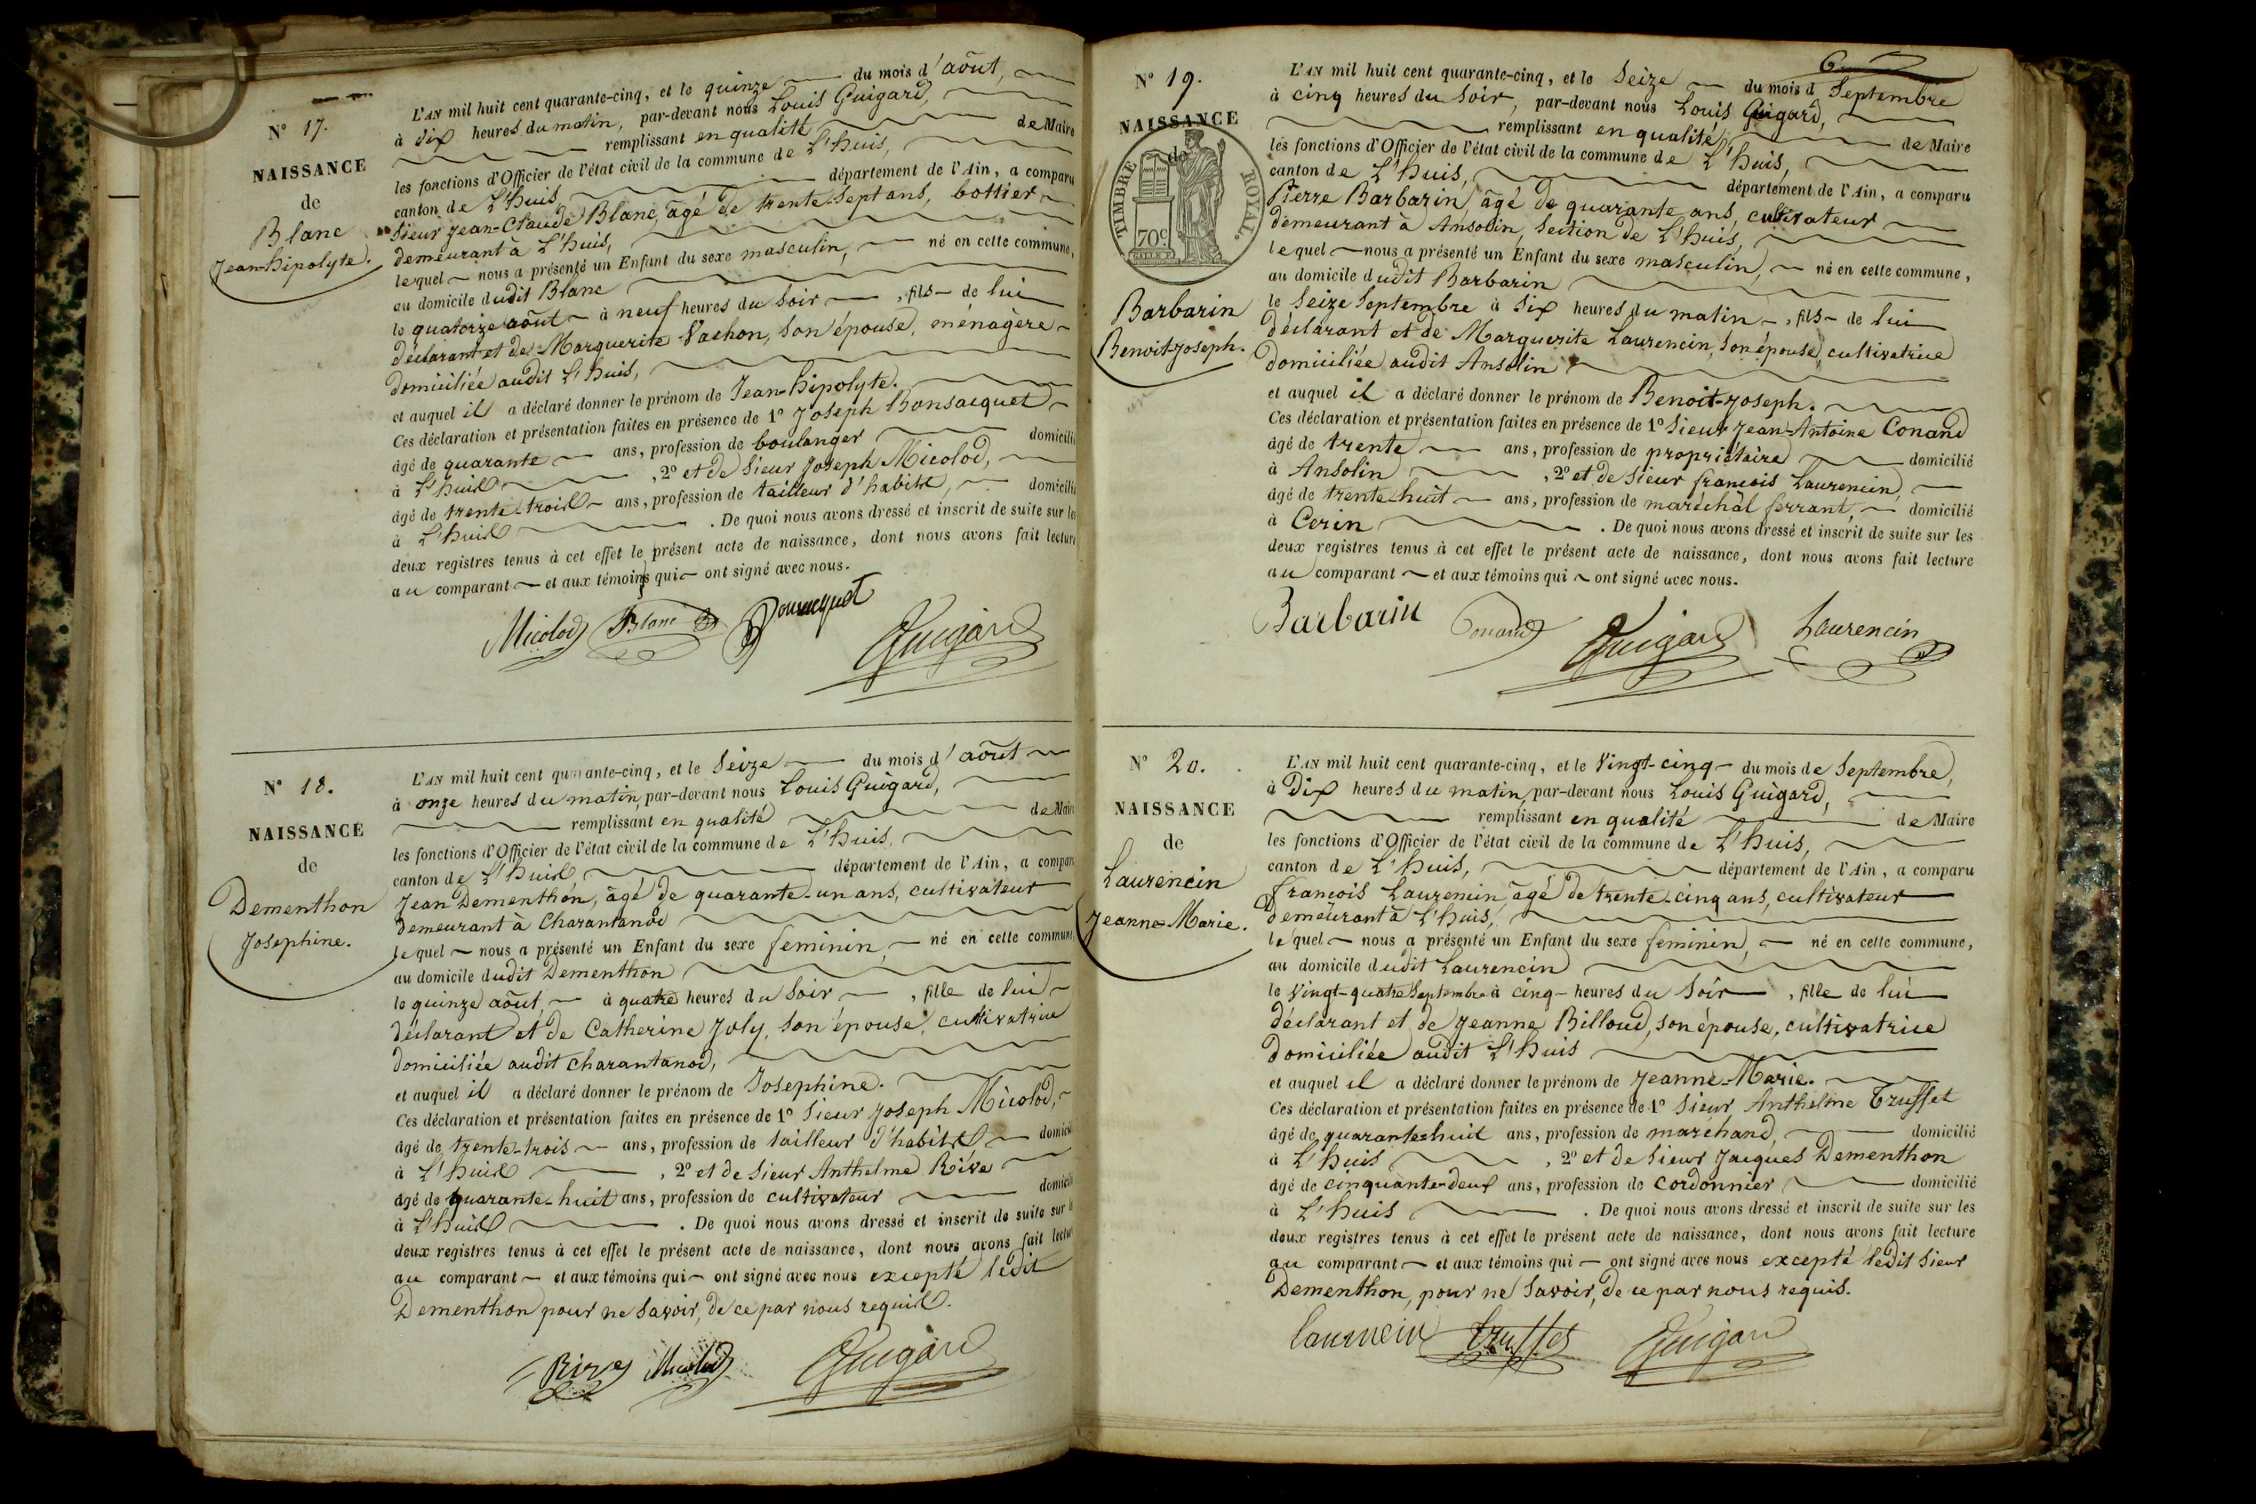 N° 17.
NAISSANCE
de
Blanc
Jean-hipolyte.
L'AN mil huit cent quarante-cinq, et le quinze du mois d'août,
à dix heures du matin, par-devant nous Louis Guigard,
remplissant en qualité de Maire
les fonctions d'Officier de l'état civil de la commune de L'huis,
canton de L'huis département de l'Ain, a comparu
Sieur Jean-Claude Blanc, âgé de trente-sept ans, bottier
demeurant à L'huis,
lequel nous a présenté un Enfant du sexe masculin, né en cette commune,
au domicile dudit Blanc
le quatorze août à neuf heures du soir, fils de lui
déclarant et de Marguerite Vachon, son épouse, ménagère
domiciliée audit L'huis,
et auquel il a déclaré donner le prénom de Jean-hipolyte.
Ces déclaration et présentation faites en présence de 1° Joseph Bonsacquet
âgé de quarante ans, profession de boulanger domicilié
à L'huis, 2° et de Sieur Joseph Micolod,
âgé de trente-trois ans, profession de tailleur d'habits, domicilié
à L'huis. De quoi nous avons dressé et inscrit de suite sur les
deux registres tenus à cet effet le présent acte de naissance, dont nous avons fait lecture
au comparant et aux témoins qui ont signé avec nous.
Micolod Blanc Guigard
N° 18.
NAISSANCE
de
Dementhon
Josephine.
L'AN mil huit cent quarante-cinq, et le Seize du mois d'août
à onze heures du matin, par-devant nous Louis Guigard,
remplissant en qualité de Maire
les fonctions d'Officier de l'état civil de la commune de L'huis,
canton de L'huis, département de l'Ain, a comparu
Jean Dementhon, âgé de quarante-un ans, cultivateur
demeurant à Charantanod
lequel nous a présenté un Enfant du sexe feminin, né en cette commune,
au domicile dudit Dementhon
le quinze août, à quatre heures du soir, fille de lui
déclarant et de Catherine Joly, son épouse, cultivatrice
domiciliée audit charantanod,
et auquel il a déclaré donner le prénom de Josephine.
Ces déclaration et présentation faites en présence de 1° Sieur Joseph Micolod,
âgé de trente-trois ans, profession de tailleur d'habits domicilié
à L'huis, 2° et de Sieur Anthelme Rive
âgé de quarante-huit ans, profession de cultivateur domicilié
à L'huis. De quoi nous avons dressé et inscrit de suite sur les
deux registres tenus à cet effet le présent acte de naissance, dont nous avons fait lecture
au comparant et aux témoins qui ont signé avec nous excepté ledit
Dementhon pour ne savoir, de ce par nous requis.
Rive Micolod Guigard
6
N° 19.
NAISSANCE
de
TIMBRE ROYAL.
70c
Barbarin
Benoit-Joseph.
L'AN mil huit cent quarante-cinq, et le Seize du mois d Septembre
à cinq heures du soir, par-devant nous Louis Guigard,
remplissant en qualité de Maire
les fonctions d'Officier de l'état civil de la commune de L'huis,
canton de L'huis, département de l'Ain, a comparu
Pierre Barbarin, âgé de quarante ans, cultivateur
demeurant à Ansolin, section de L'huis,
lequel nous a présenté un Enfant du sexe masculin, né en cette commune,
au domicile dudit Barbarin
le Seize Septembre à six heures du matin, fils de lui
déclarant et de Marguerite Laurencin, son épouse, cultivatrice
domiciliée audit Ansolin
et auquel il a déclaré donner le prénom de Benoit-Joseph.
Ces déclaration et présentation faites en présence de 1° Sieur Jean-Antoine Conand
âgé de trente ans, profession de propriétaire domicilié
à Ansolin, 2° et de Sieur francois Laurencin,
âgé de trente-huit ans, profession de maréchal ferrant, domicilié
à Cerin. De quoi nous avons dressé et inscrit de suite sur les
deux registres tenus à cet effet le présent acte de naissance, dont nous avons fait lecture
au comparant et aux témoins qui ont signé avec nous.
Barbarin Conand Guigard Laurencin
N° 20.
NAISSANCE
de
Laurencin
Jeanne-Marie.
L'AN mil huit cent quarante-cinq, et le Vingt-cinq du mois de Septembre,
à Dix heures du matin, par-devant nous Louis Guigard,
remplissant en qualité de Maire
les fonctions d'Officier de l'état civil de la commune de L'huis,
canton de L'huis, département de l'Ain, a comparu
francois Laurencin, âgé de trente-cinq ans, cultivateur
demeurant à L'huis,
lequel nous a présenté un Enfant du sexe feminin, né en cette commune,
au domicile dudit Laurencin
le Vingt-quatre Septembre à cinq heures du soir, fille de lui
déclarant et de Jeanne Billoud, son épouse, cultivatrice
domiciliée audit L'huis
et auquel il a déclaré donner le prénom de Jeanne-Marie.
Ces déclaration et présentation faites en présence de 1° Sieur Anthelme Truffet
âgé de quarante-huit ans, profession de marchand, domicilié
à L'huis, 2° et de Sieur Jacques Dementhon
âgé de cinquante-deux ans, profession de cordonnier domicilié
à L'huis. De quoi nous avons dressé et inscrit de suite sur les
deux registres tenus à cet effet le présent acte de naissance, dont nous avons fait lecture
au comparant et aux témoins qui ont signé avec nous excepté ledit Sieur
Dementhon, pour ne savoir, de ce par nous requis.
Laurencin Truffet Guigard